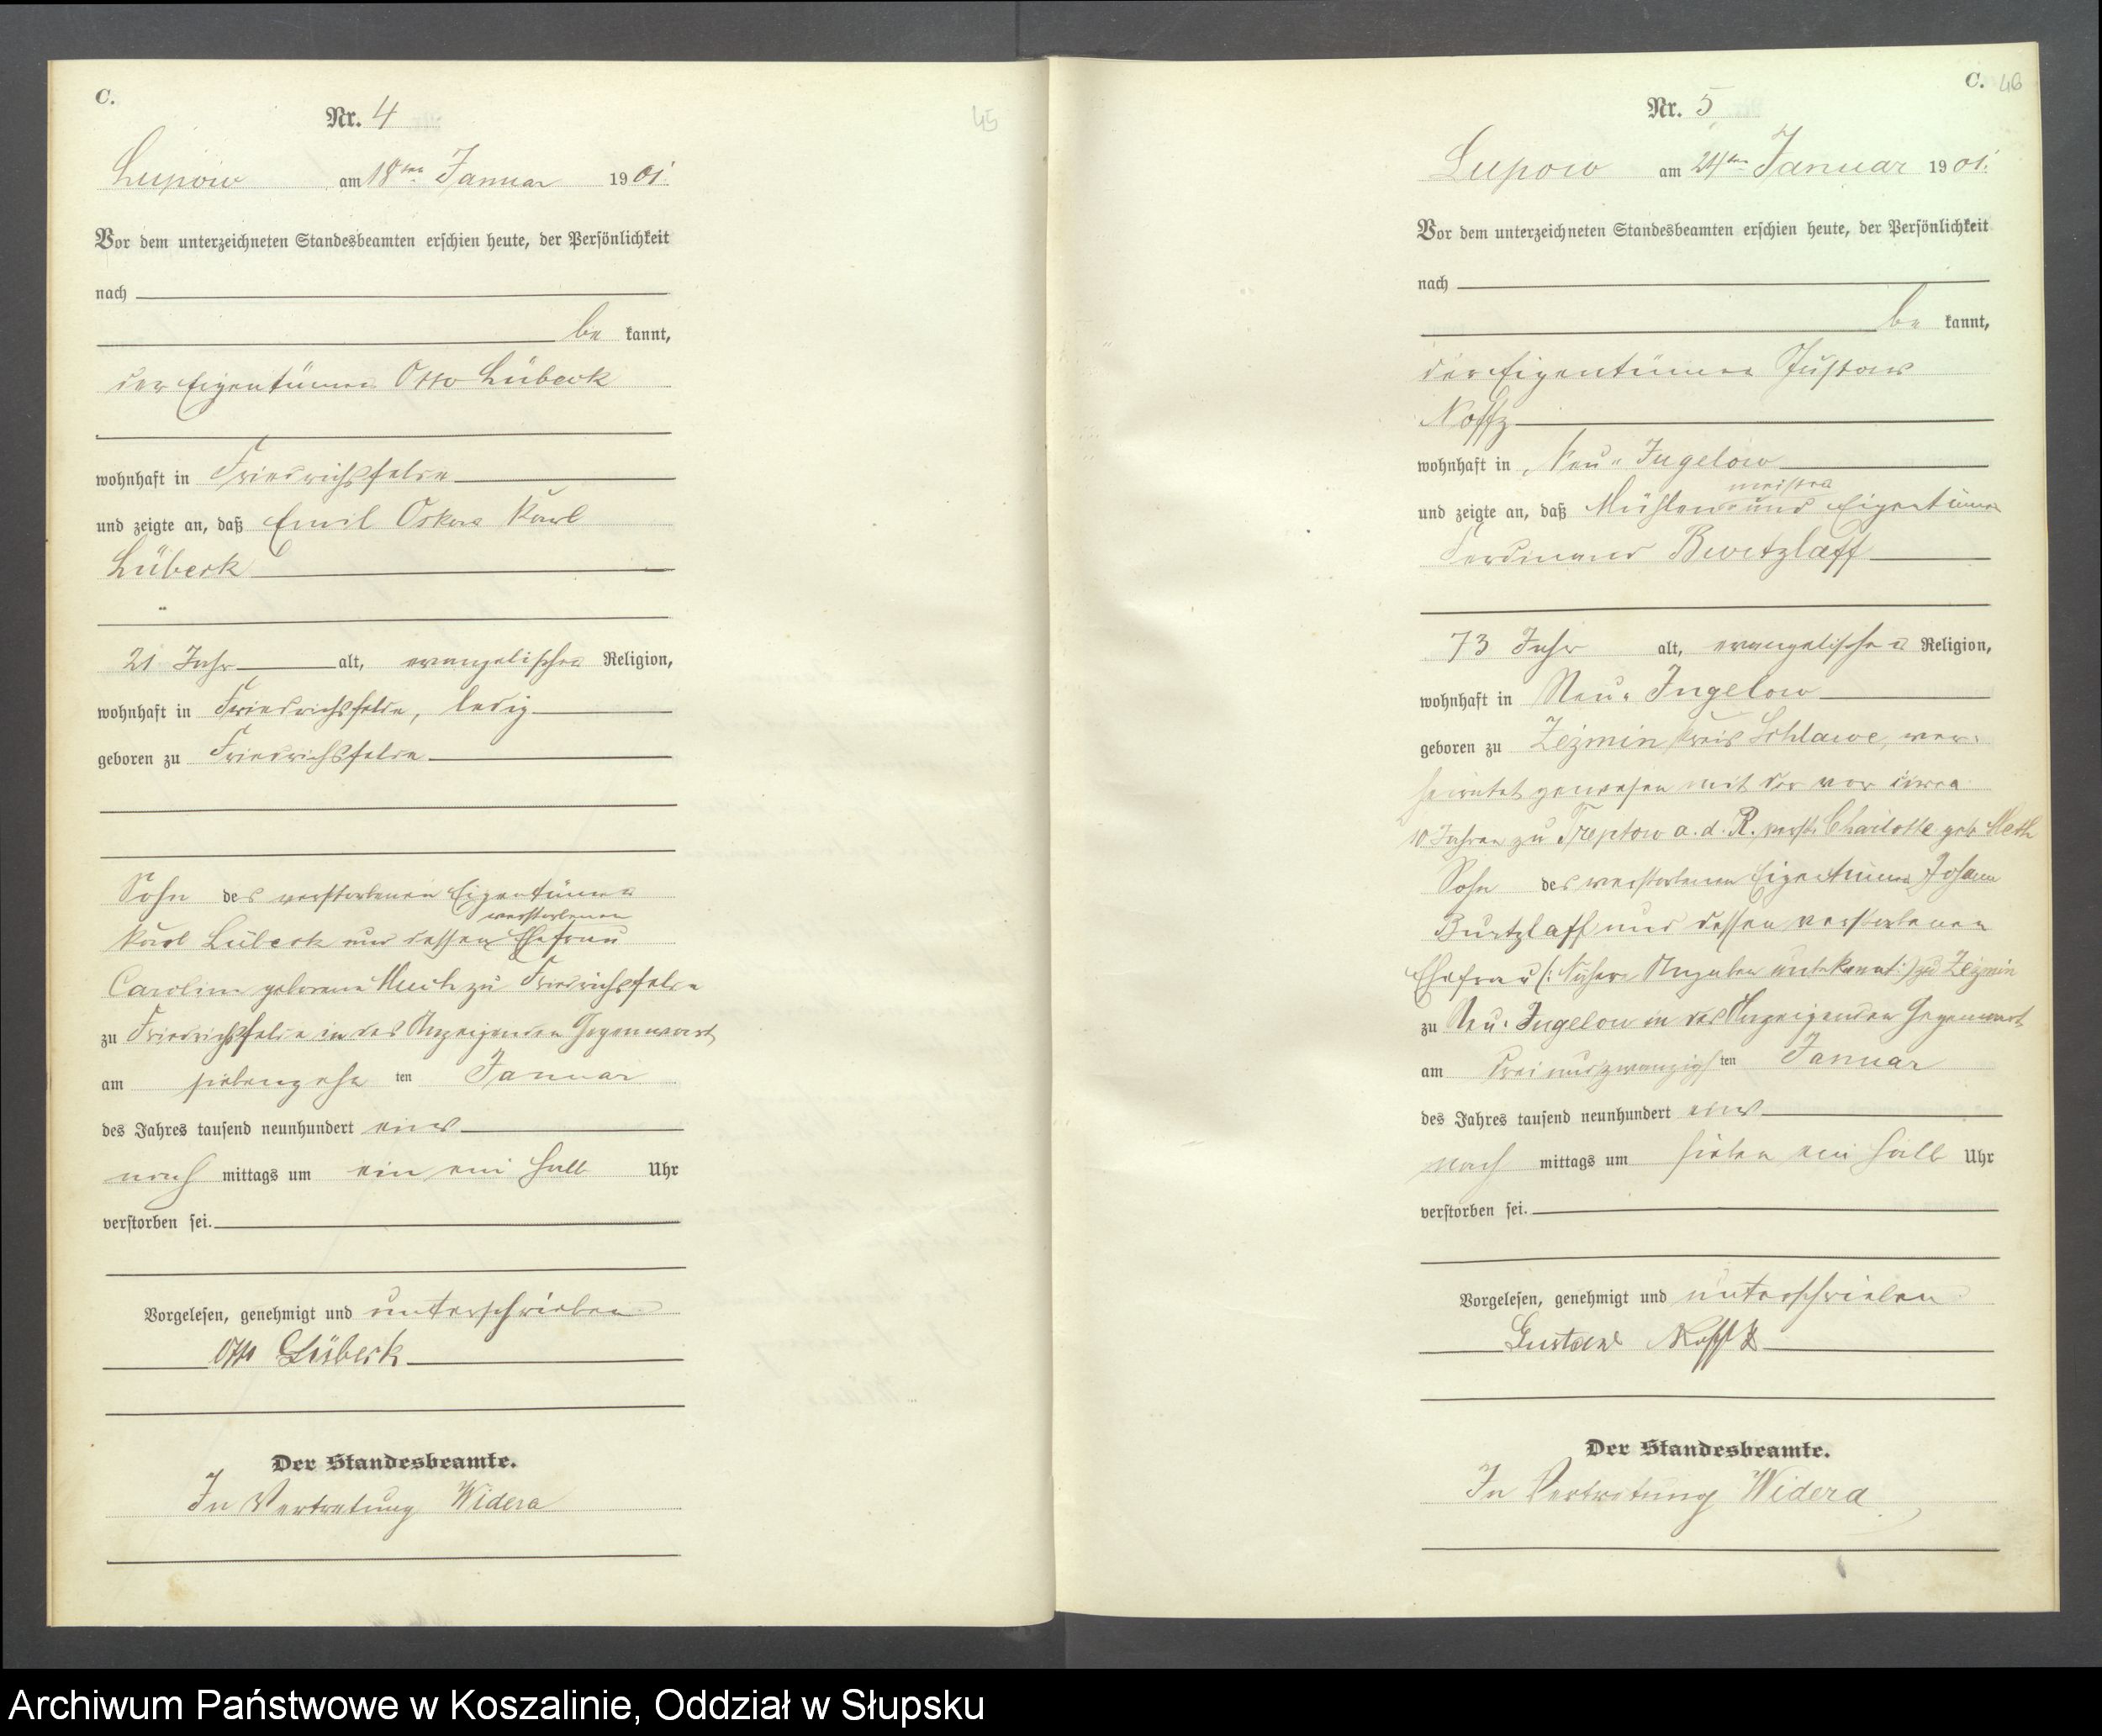 C.
Nr. 4
45
Lupow am 18ten Januar 1901.
Vor dem unterzeichneten Standesbeamten erschien heute, der Persönlichkeit
nach
be kannt,
der Eigentümer Otto Lübeck
wohnhaft in Friedrichsfelde
und zeigte an, daß Emil Oskar Karl
Lübeck
21 Jahr alt, evangelischer Religion,
wohnhaft in Friedrichsfelde, ledig
geboren zu Friedrichsfelde
Sohn des verstorbenen Eigentümers
verstorbenen
Karl Lübeck und dessen Ehefrau
Caroline geborene zu Friedrichsfelde
zu Friedrichsfelde in des Anzeigenden Gegenwart
am siebenzehn ten Januar
des Jahres tausend neunhundert eins
nach mittags um ein ein halb Uhr
verstorben sei.
Vorgelesen, genehmigt und unterschrieben
Otto Lübeck
Der Standesbeamte.
In Vertretung Widera
C. 46
Nr. 5
Lupow am 24ten Januar 1901.
Vor dem unterzeichneten Standesbeamten erschien heute, der Persönlichkeit
nach
be kannt,
der Eigentümer Gustav
Noffz
wohnhaft in Neu-Jugelow
meister
und zeigte an, daß Mühlen- und Eigentümer
Ferdinand Burtzlaff
73 Jahr alt, evangelischer Religion,
wohnhaft in Neu-Jugelow
geboren zu Zezmin Kreis Schlawe, ver-
heiratet gewesen mit der vor circa
10 Jahren zu Treptow a. d. R. verst. Charlotte geb.
Sohn des verstorbenen Eigentümers Johann
Burtzlaff und dessen verstorbenen
Ehefrau (: Nähere Angaben unbekannt :) zu Zezmin
zu Neu-Jugelow in des Anzeigenden Gegenwart
am dreiundzwanzigs ten Januar
des Jahres tausend neunhundert eins
nach mittags um sieben ein halb Uhr
verstorben sei.
Vorgelesen, genehmigt und unterschrieben
Gustav Noffz
Der Standesbeamte.
In Vertretung Widera
Archiwum Państwowe w Koszalinie, Oddział w Słupsku